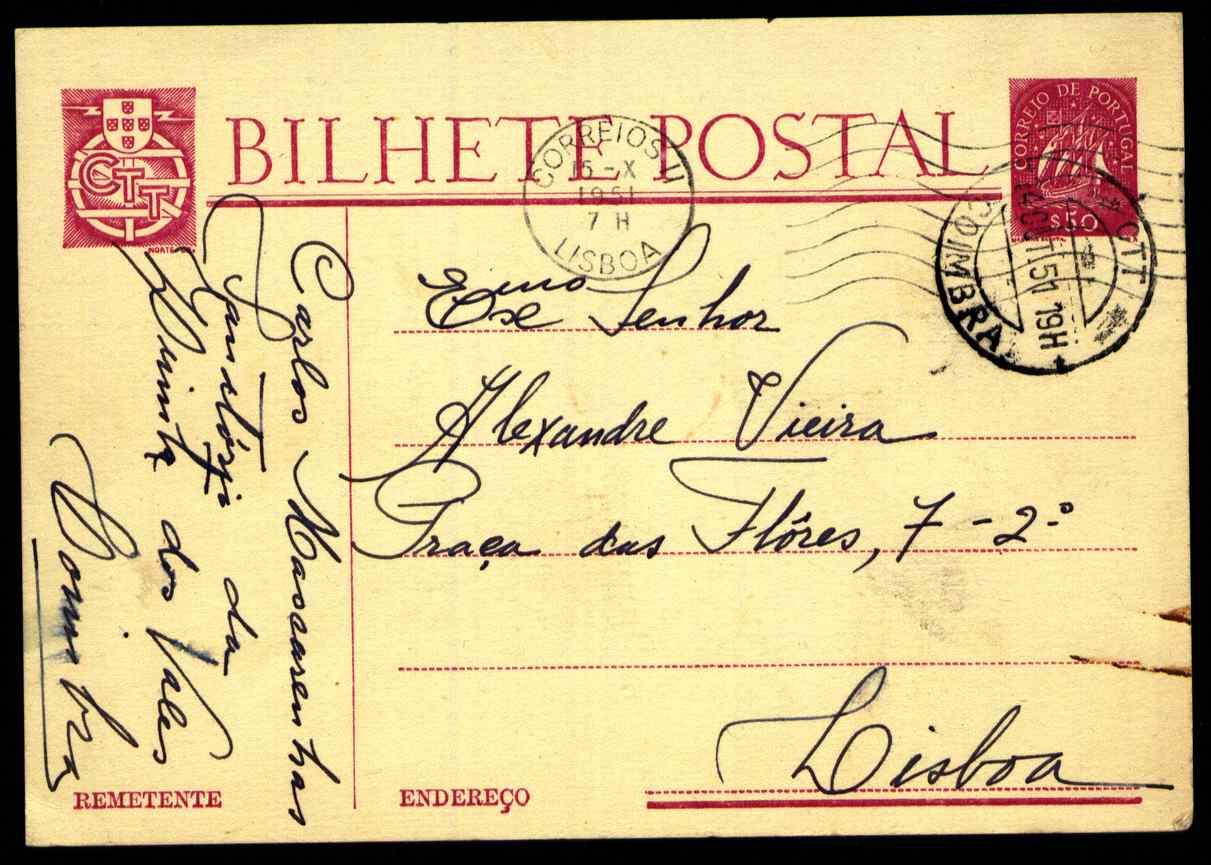 CTT
NORTE
BILHETE POSTAL
CORREIO DE PORTUGAL
$50
CORREIOS
15-X
1951
7 H
LISBOA
COIMBRA
CTT
51 19H
Exmo Senhor
Alexandre Vieira
Praça das Flôres, 7-2º
Lisboa
Carlos Mascarenhas
Sanatório da
Quinta dos Vales
Coimbra
REMETENTE
ENDEREÇO